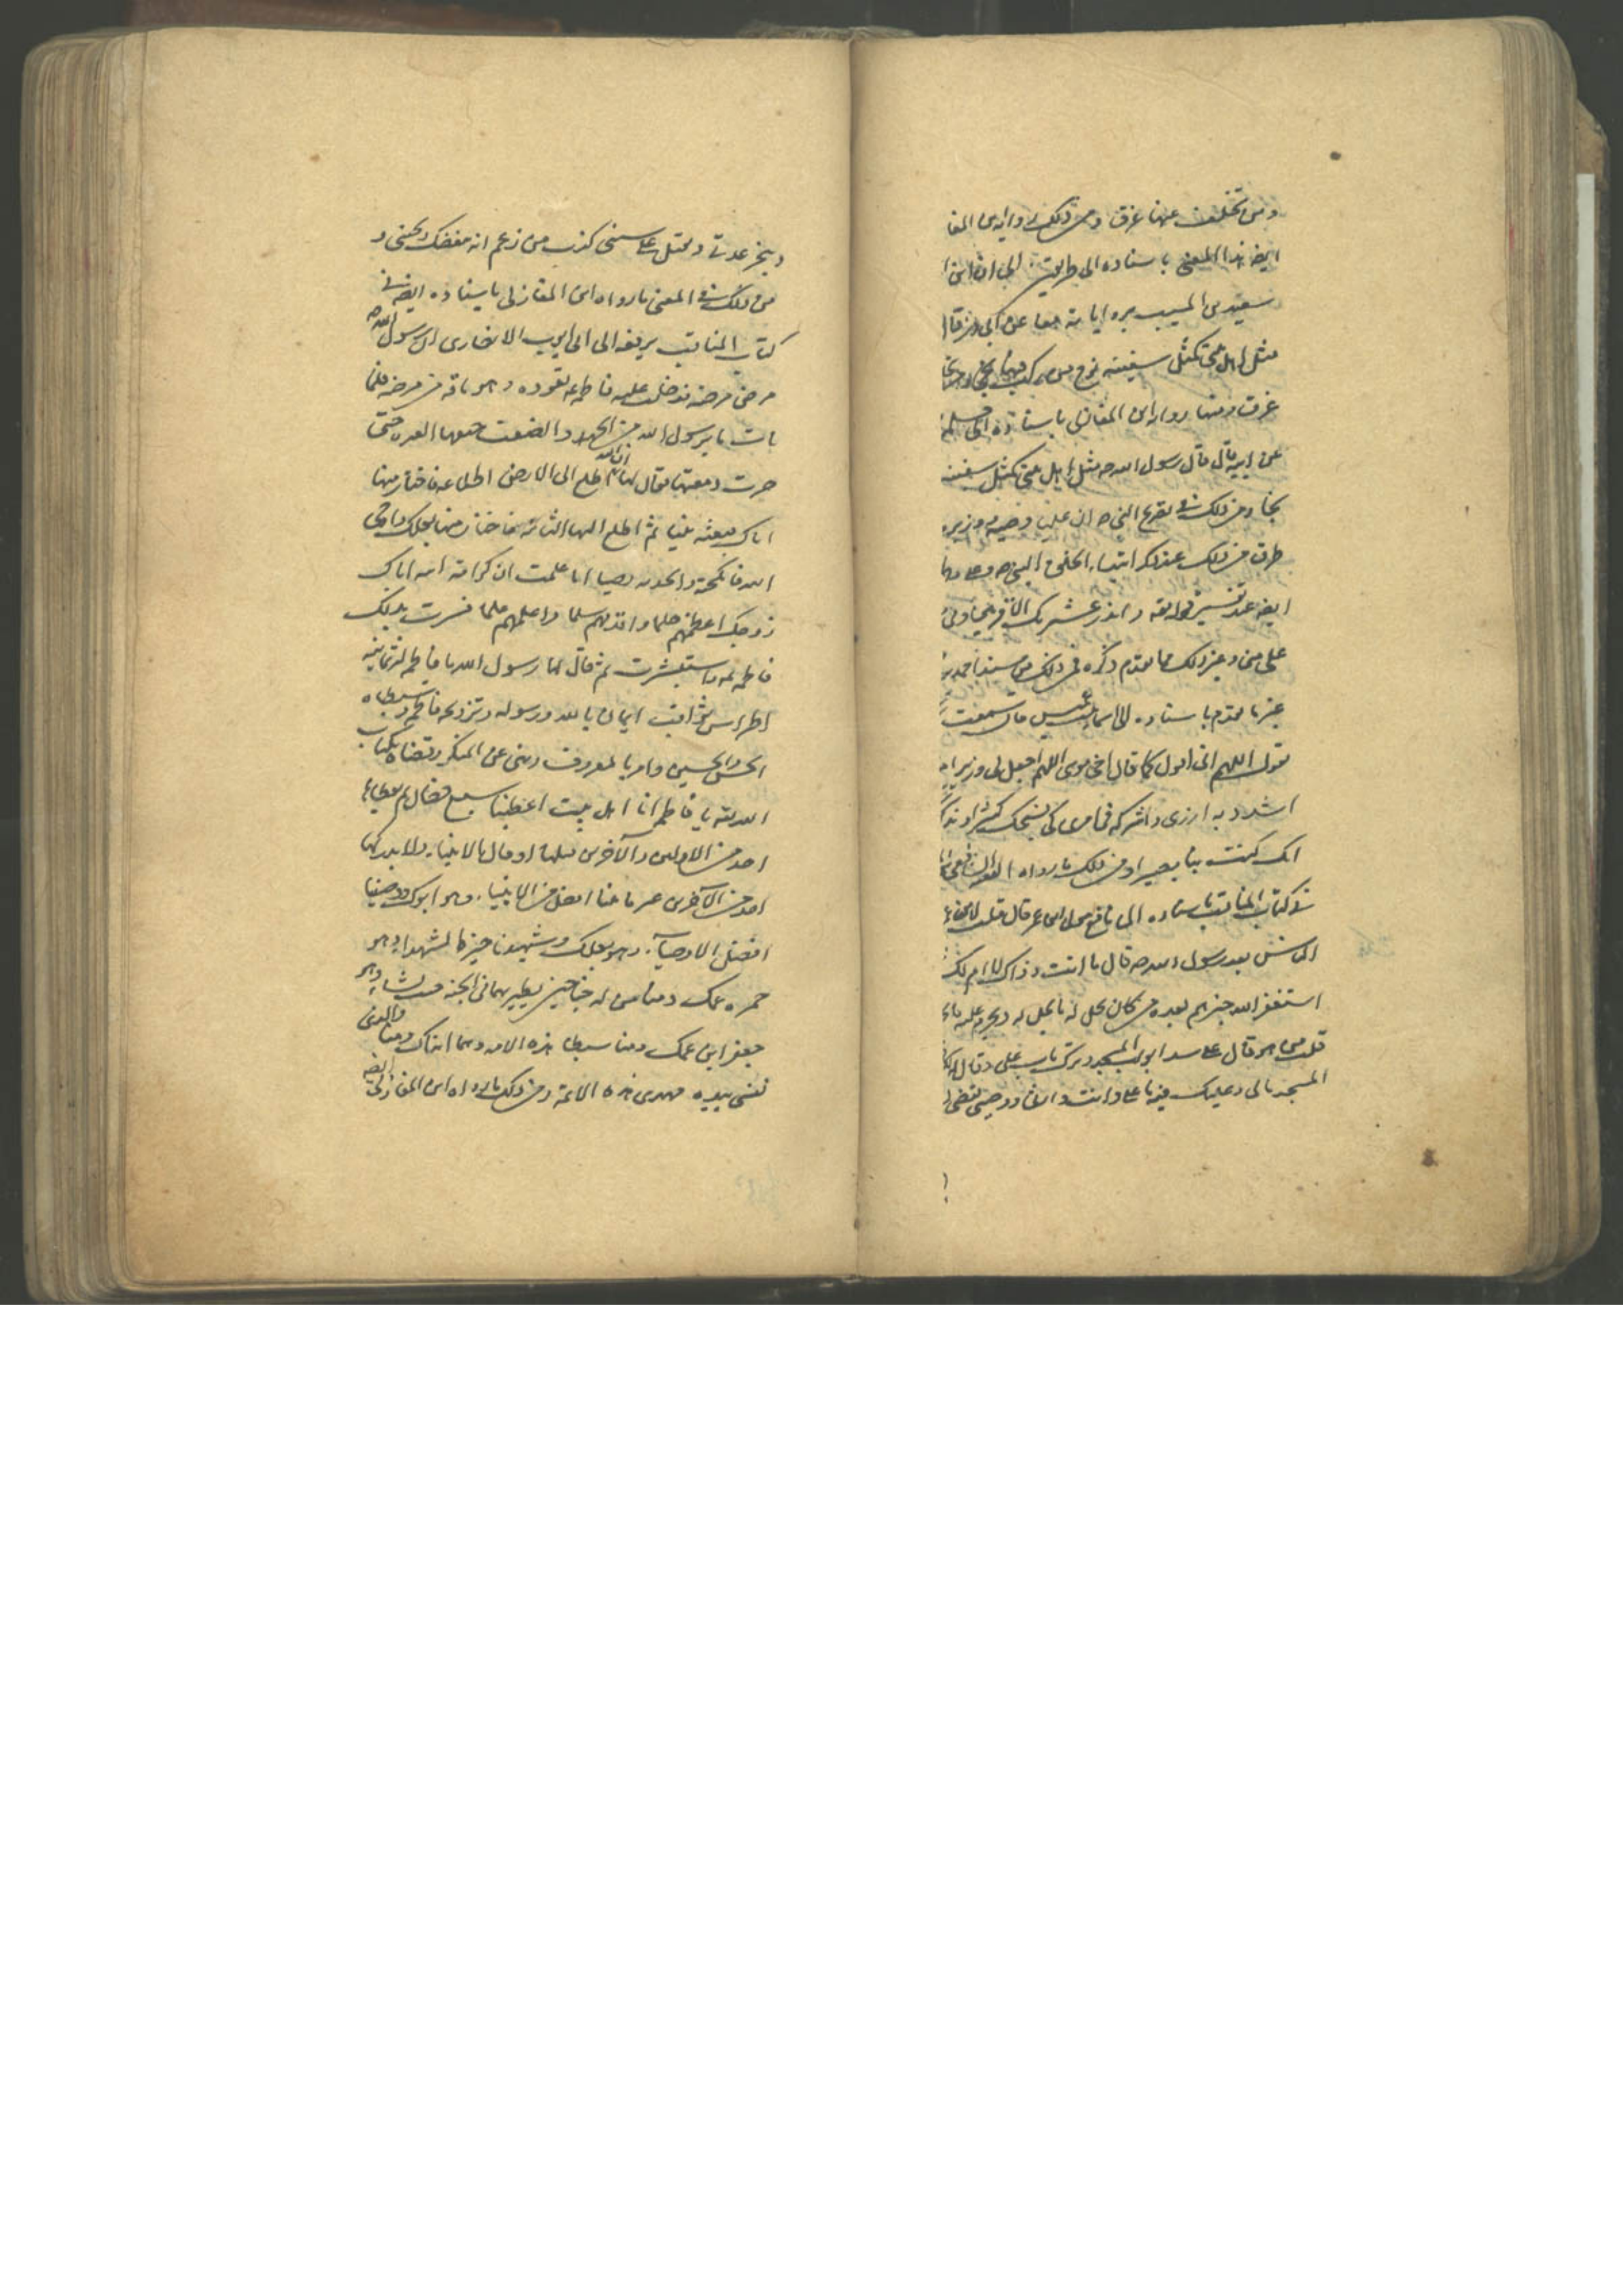 ومن تخلف عنها غرق ومن ذلك رواية ابن المغا
ايضا هذا المعنى باسناده الى طريقين الى ابن
سعيد بن المسيب برواياته معا عن ابى ذر قال
مثل اهل بيتى كمثل سفينة نوح من ركب فيها نجى ومن تخلف
غرق ومنها رواه ابن المغازلى باسناده الى سلمة
عن ابيه قال قال رسول الله ص مثل اهل بيتى كمثل سفينة
نجا ومن ذلك فى تصريح النبى ص ان عليا وصيه ووزيره
طرق من ذلك عند ذكر ابتداء الخلق النبى ص وعلى وما
ايضا عند تفسير قوله تعالى وانذر عشيرتك الاقربين
على منى وغير ذلك مما تقدم ذكره فى ذلك من مسند احمد بن
غير ما تقدم باسناده الى اسماء بنت عميس قالت سمعت
يقول اللهم انى اقول كما قال اخى موسى اللهم اجعل لى وزيرا
اشدد به ازرى واشركه فى امرى كى نسبحك كثيرا ونذكرك
انك كنت بنا بصيرا ومن ذلك ما رواه الفقيه الشافعى
فى كتاب المناقب باسناده الى نافع مولى ابن عمر قال قلت لابن عمر
الناس بعد رسول الله ص قال ما انت وذاك لا ام لك
استغفر الله خيرهم بعده من كان يحل له ما يحل له ويحرم عليه ما
قلت من هو قال على سد ابواب المسجد وترك باب على وقال له
المسجد مالى وعليك فيه ما على وانت وارثى ووصيى تقضى
وتنجز عدتى وتقتل على سنتى كذب من زعم انه يبغضك ويحبنى و
من ذلك فى المعنى ما رواه ابن المغازلى باسناده ايضا فى
كتاب المناقب يرفعه الى ابى ايوب الانصارى ان رسول الله ص
مرض مرضة فدخلت عليه فاطمة ع تعوده وهو ناقه من مرضه فلما
رات ما برسول الله من الجهد والضعف خنقتها العبرة حتى
جرت دمعتها فقال لها ان الله اطلع الى الارض اطلاعة فاختار منها
اباك فبعثه نبيا ثم اطلع اليها الثانية فاختار منها بعلك فاوحى
الله فانكحته واتخذته وصيا اما علمت ان كرامة الله اياك
زوجك اعظمهم حلما واقدمهم سلما واعلمهم علما فسرت بذلك
فاطمة واستبشرت ثم قال لها رسول الله يا فاطمة له ثمانية
اضراس ثواقب ايمان بالله ورسوله وتزويجه فاطمة وسبطاه
الحسن والحسين وامر بالمعروف ونهى عن المنكر وقضاه بكتاب
الله يا فاطمة انا اهل بيت اعطينا سبع خصال لم يعطها
احد من الاولين والاخرين قبلنا او قال الانبياء ولا يدركها
احد من الآخرين غيرنا منا افضل الانبياء وهو ابوك ووصينا
افضل الاوصياء وهو بعلك وشهيدنا خير الشهداء وهو
حمزه عمك ومنا من له جناحين يطير بهما فى الجنة حيث يشاء وهو
جعفر ابن عمك ومنا سبطا هذه الامة وهما ابناك ومنا والذى
نفسى بيده مهدى هذه الامة ومن ذلك ما رواه ابن المغازلى ايضا